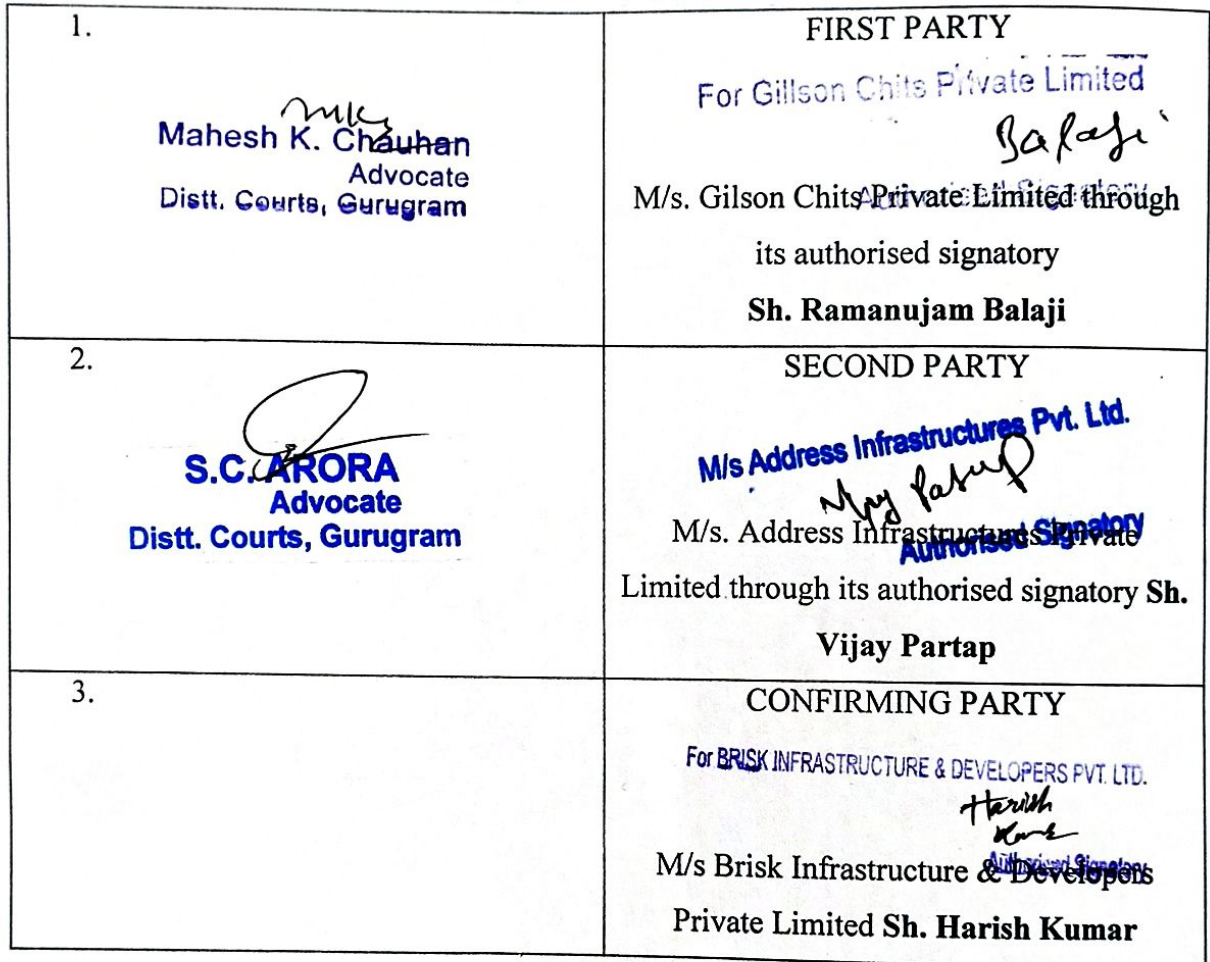 1.
mks
Mahesh K. Chauhan
Advocate
Distt. Courts, Gurugram
FIRST PARTY
For Gillson Chits Private Limited
Balaji
Authorised Signatory
M/s. Gilson Chits Private Limited through
its authorised signatory
Sh. Ramanujam Balaji
2.
S.C. ARORA
Advocate
Distt. Courts, Gurugram
SECOND PARTY
M/s Address Infrastructures Pvt. Ltd.
Vijay Partap
Authorised Signatory
M/s. Address Infrastructures Private
Limited through its authorised signatory Sh.
Vijay Partap
3.
CONFIRMING PARTY
For BRISK INFRASTRUCTURE & DEVELOPERS PVT. LTD.
Harish
Authorised Signatory
M/s Brisk Infrastructure & Developers
Private Limited Sh. Harish Kumar